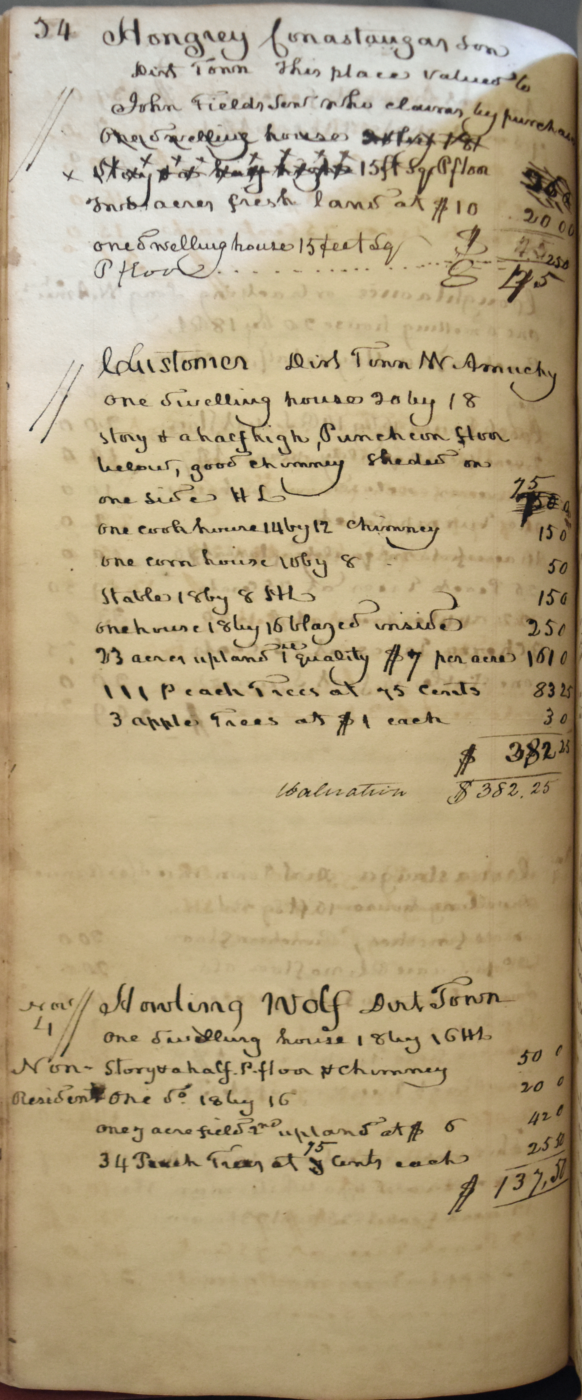 54 Hongrey Conastaugas son
Dirt Town This place valued to
John Fields Senr who claims by purchase
One dwelling house
x 15 ft Sq P floor
Two acres fresh land at $10 20 00
one dwelling house 15 feet Sq $ 25 0
P floor $ 45
Customer Dirt Town N. Amuchy
one dwelling house 20 by 18
story & a half high, Puncheon floor
below, good chimney Sheded on
one side H L 75 0
one cook house 14 by 12 chimney 15 0
one corn house 10 by 8 5 0
Stable 18 by 8 H L 15 0
one house 18 by 16 blazed inside 25 0
23 acres upland 1st quality $7 per acre 161 0
111 Peach Trees at 75 Cents 83 25
3 apple Trees at $1 each 3 0
$ 382 25
Valuation $ 382.25
Nov 4 Howling Wolf Dirt Town
One dwelling house 18 by 16 H L
Non- Story & a half. P. floor & chimney 50 0
Resident One do 18 by 16 20 0
one 7 acre field 2nd upland at $ 6 42 0
34 Peach Trees at 75 Cents each 25 50
$ 137,50